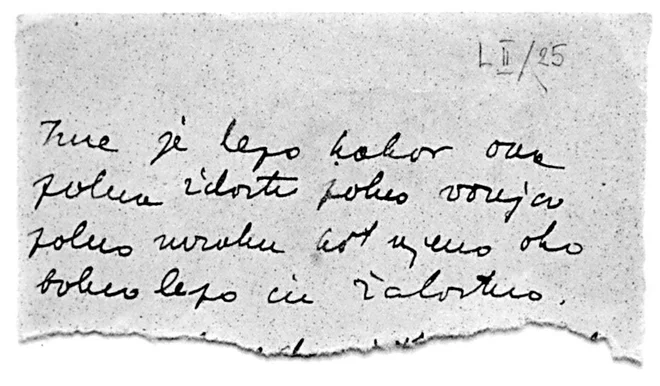 L II/25
Ime je lepo kakor ona
polna sladkosti polno vonja
polno mraku kot njeno oko
bolno lepo in žalostno.